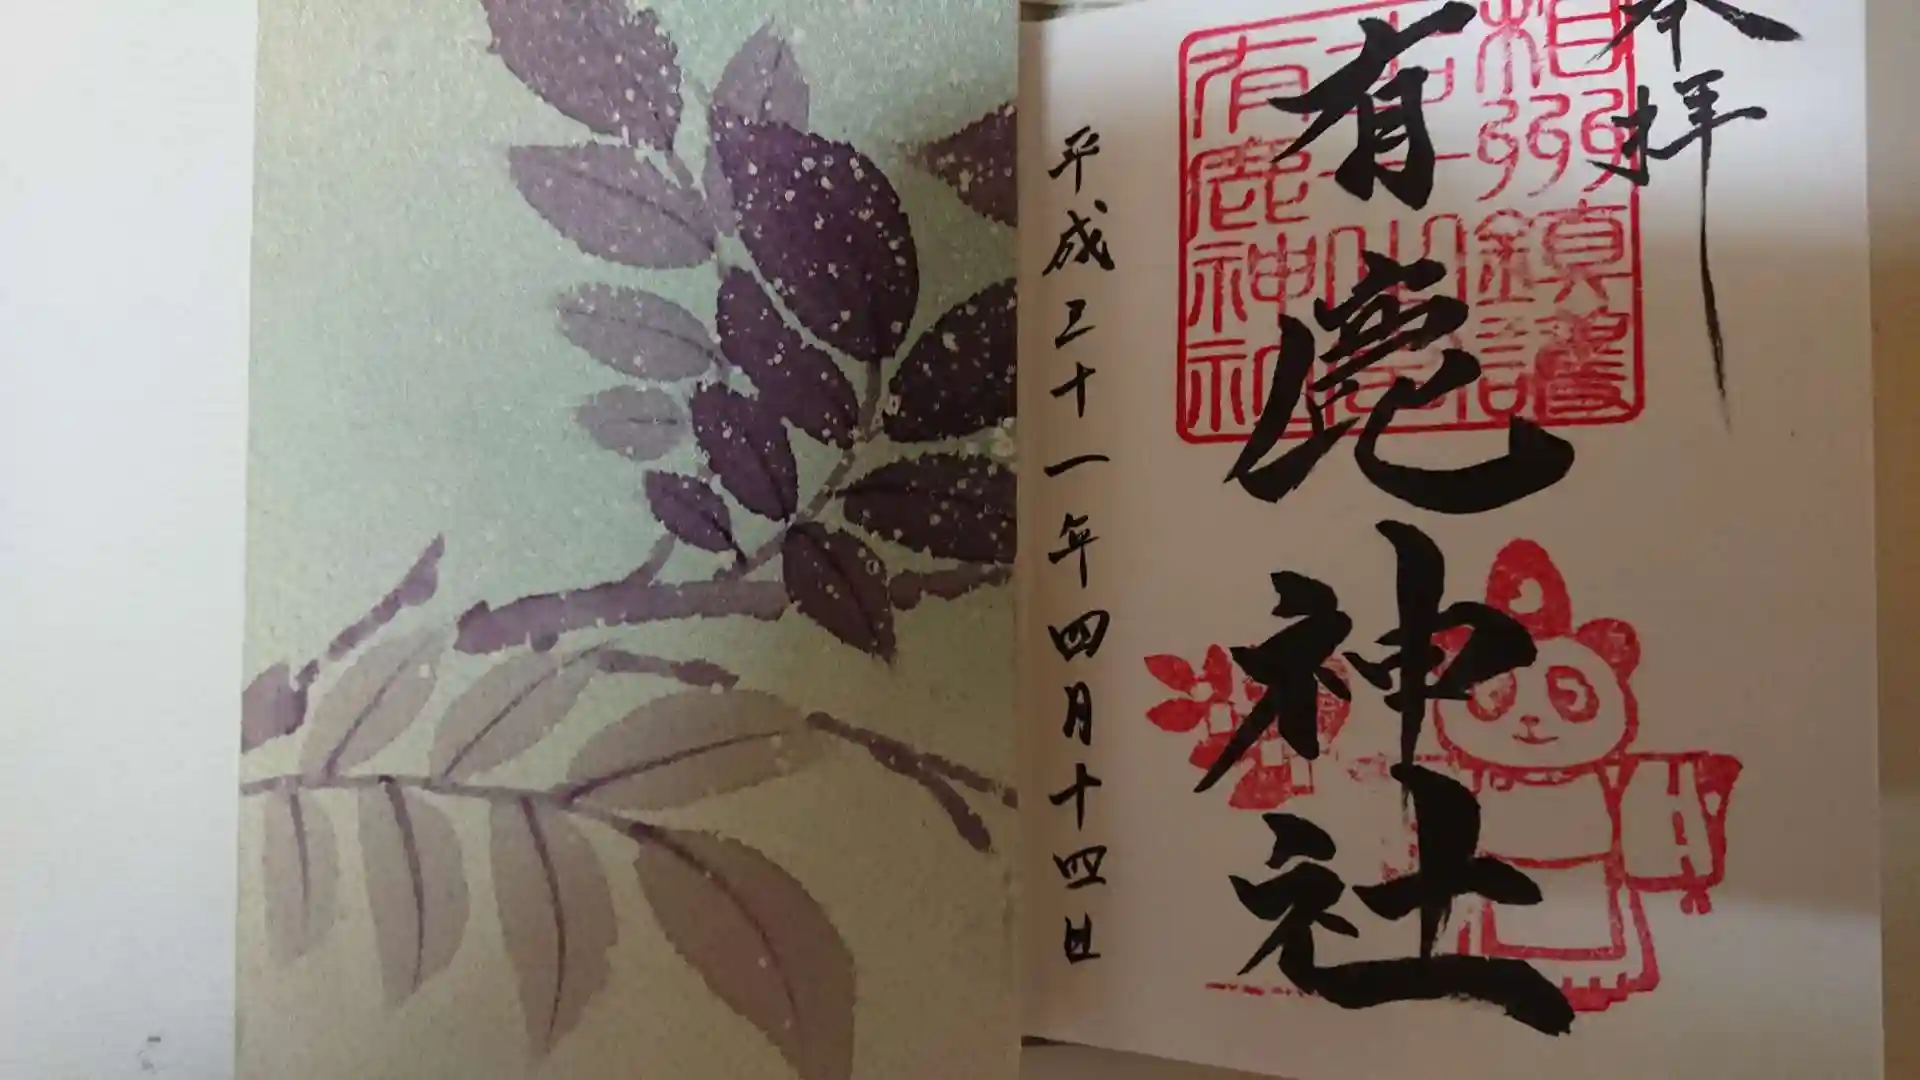 奉拝
有鹿神社
平成三十一年四月十四日
相模
鎮護
有鹿神社